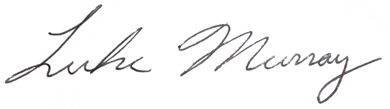 Luke Murray